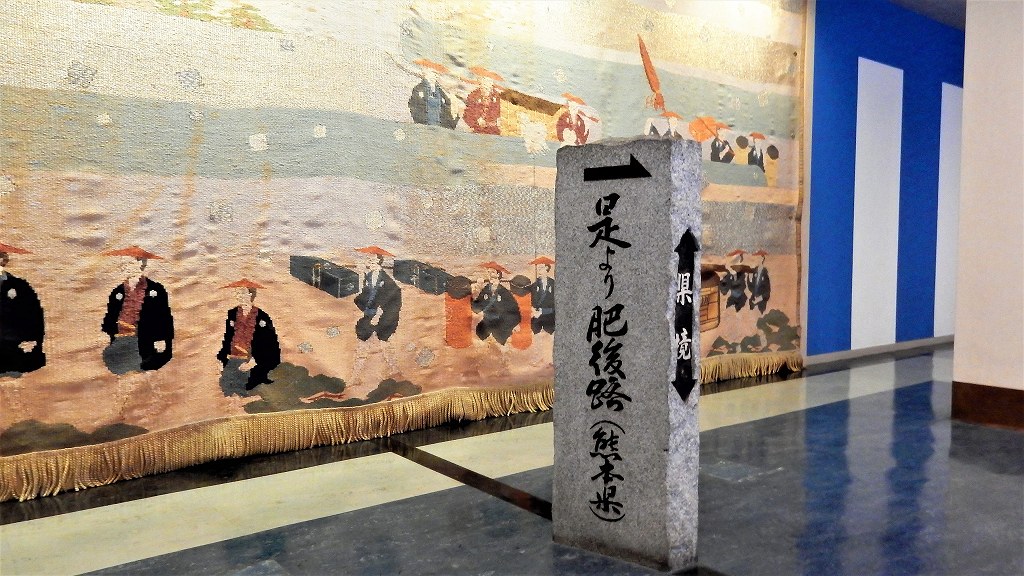 是より肥後路(熊本県)
県境